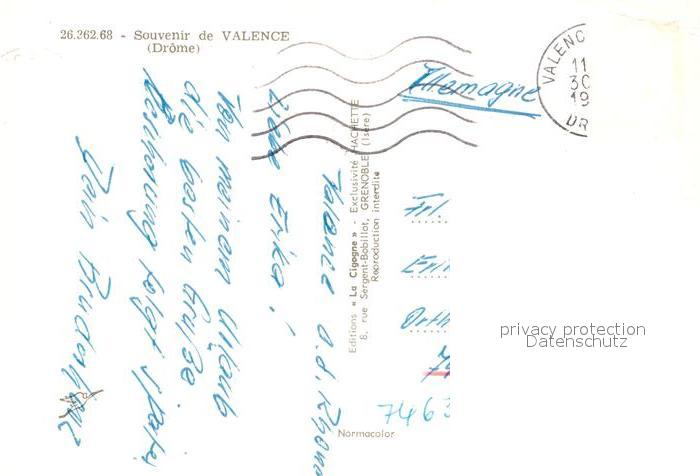 26.362.68 - Souvenir de VALENCE
(Drôme)
VALENC
11
30
19
DR
Allemagne
Valence a.d. Rhone
Liebe Erika!
Von meinem Urlaub
die besten Grüße.
folgt später
Dein
Editions « La Cigogne » - Exclusivité HACHETTE
8, rue Sergent-Bobillot, GRENOBLE (Isère)
Reproduction interdite
Frl.
Eri
Orth
7463
Normacolor
privacy protection
Datenschutz